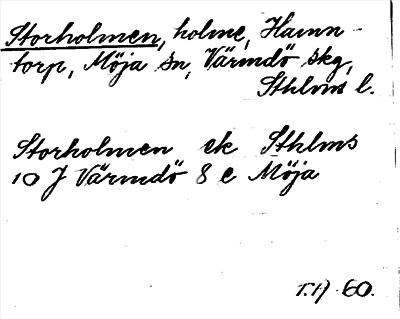 Storholmen, holme, Hamn-
torp, Möja sn, Värmdö skg,
Sthlms l.
Storholmen ek Sthlms
10 J Värmdö 8 e Möja
60.